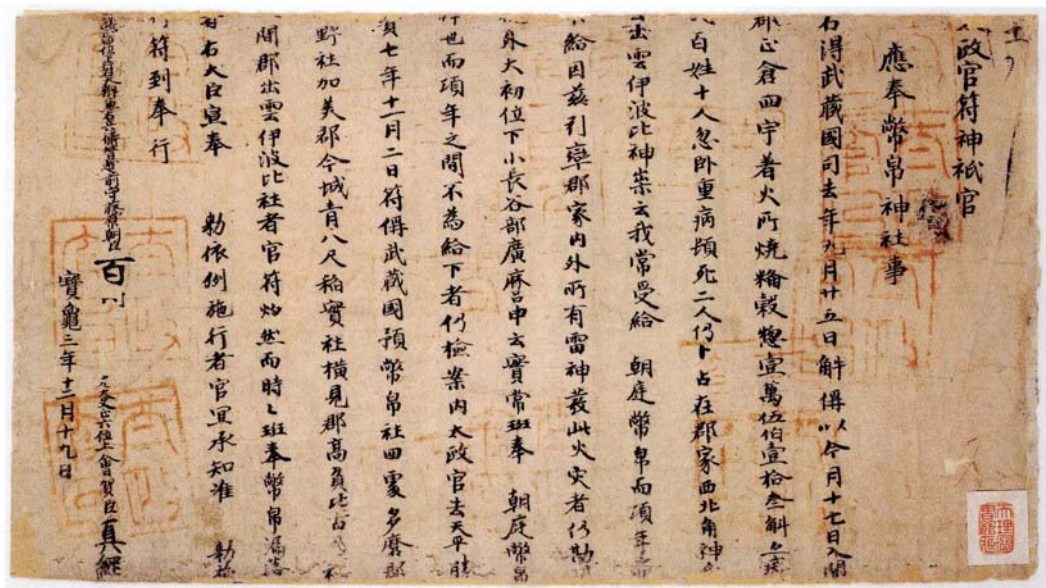 政官符神祇官
應奉幣帛神社事
右得武蔵國司去年九月廿五日解偁以今月十七日入間
郡正倉四宇着火所燒糒穀惣壹萬伍伯壹拾叁斛
百姓十人忽卧重病頓死二人仍卜占在郡家西北角神
出雲伊波比神祟云我常受給 朝庭幣帛而項年
給因茲引率郡家内外所有雷神發此火灾者仍勘
外大初位下小長谷部廣麻呂申云實常班奉 朝庭幣帛
也而項年之間不為給下者仍檢案内太政官去天平勝
七年十一月二日符偁武蔵國預幣帛社四處多磨郡
野社加美郡今城青八尺稲實社横見郡高負比古
間郡出雲伊波比社者官符灼然而時々班奉幣帛漏落
右大臣宣奉 勅依例施行者官宜承知准 勅施
符到奉行
百川
正六位上會賀臣真綱
寶龜三年十二月十九日